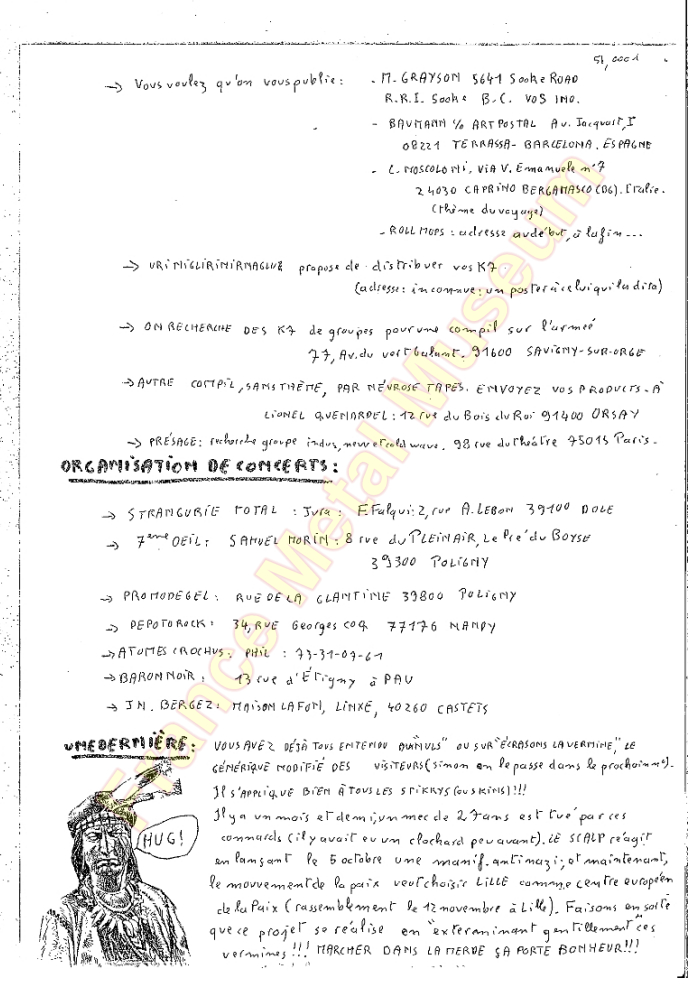 → Vous voulez qu'on vous publie :
- M. GRAYSON 5641 Sooke ROAD
R.R.I. Sooke B.C. VOS INO.
- BAUMANN % ART POSTAL Av. Jacquart, I
08221 TERRASSA - BARCELONA. ESPAGNE
- C. MOSCOLONI, VIA V. Emanuele n°7
24030 CAPRINO BERGAMASCO (BG). Italie.
(thème du voyage)
- ROLL MOPS : adresse au début, à la fin ...
→ propose de distribuer vos K7
(adresse : inconnue : un poster à celui qui la dira)
→ ON RECHERCHE DES K7 de groupes pour une compil sur l'armée
77, Av. du vert Galant. 91600 SAVIGNY-SUR-ORGE
→ AUTRE COMPIL, SANS THÈME, PAR NÉVROSE TAPES. ENVOYEZ VOS PRODUCTS. À
LIONEL QUEMARDEL : 12 rue du Bois du Roi 91400 ORSAY
→ PRÉSAGE : recherche groupe indus, new et cold wave. 98 rue du théâtre 75015 Paris.
ORGANISATION DE CONCERTS :
→ STRANGURIE TOTAL : Jura : F. Falqui : 2, rue A. LEBON 39100 DOLE
→ 7eme OEIL : SAMUEL MORIN : 8 rue du PLEIN AIR, Le Pré du BOYSE
39300 POLIGNY
→ PROMODEGEL : RUE DE LA GLANTINE 39800 POLIGNY
→ DEPOTOROCK : 34, RUE Georges COQ 77176 NANDY
→ ATOMES CROCHUS : PHIL : 73-31-07-61
→ BARON NOIR : 13 rue d'Étigny à PAU
→ JN. BERGEZ : MAISON LAFON, LINXE, 40260 CASTETS
UNE DERNIÈRE :
VOUS AVEZ DÉJÀ TOUS ENTENDU OU SUR "ÉCRASONS LA VERMINE", LE
GÉNÉRIQUE MODIFIÉ DES VISITEURS (sinon on le passe dans le prochain n°).
Il S'APPLIQUE BIEN À TOUS LES (OU SKINS) !!!
HUG!
Il y a un mois et demi, un mec de 27 ans est tué par ces
connards (il y avait eu un clochard peu avant). LE SCALP réagit
en lançant le 5 octobre une manif. antinazi ; et maintenant,
le mouvement de la paix veut choisir LILLE comme centre européen
de la Paix (rassemblement le 12 novembre à Lille). Faisons en sorte
que ce projet se réalise en "exterminant gentillement" ces
vermines !!! MARCHER DANS LA MERDE ÇA PORTE BONHEUR !!!
France Metal Museum